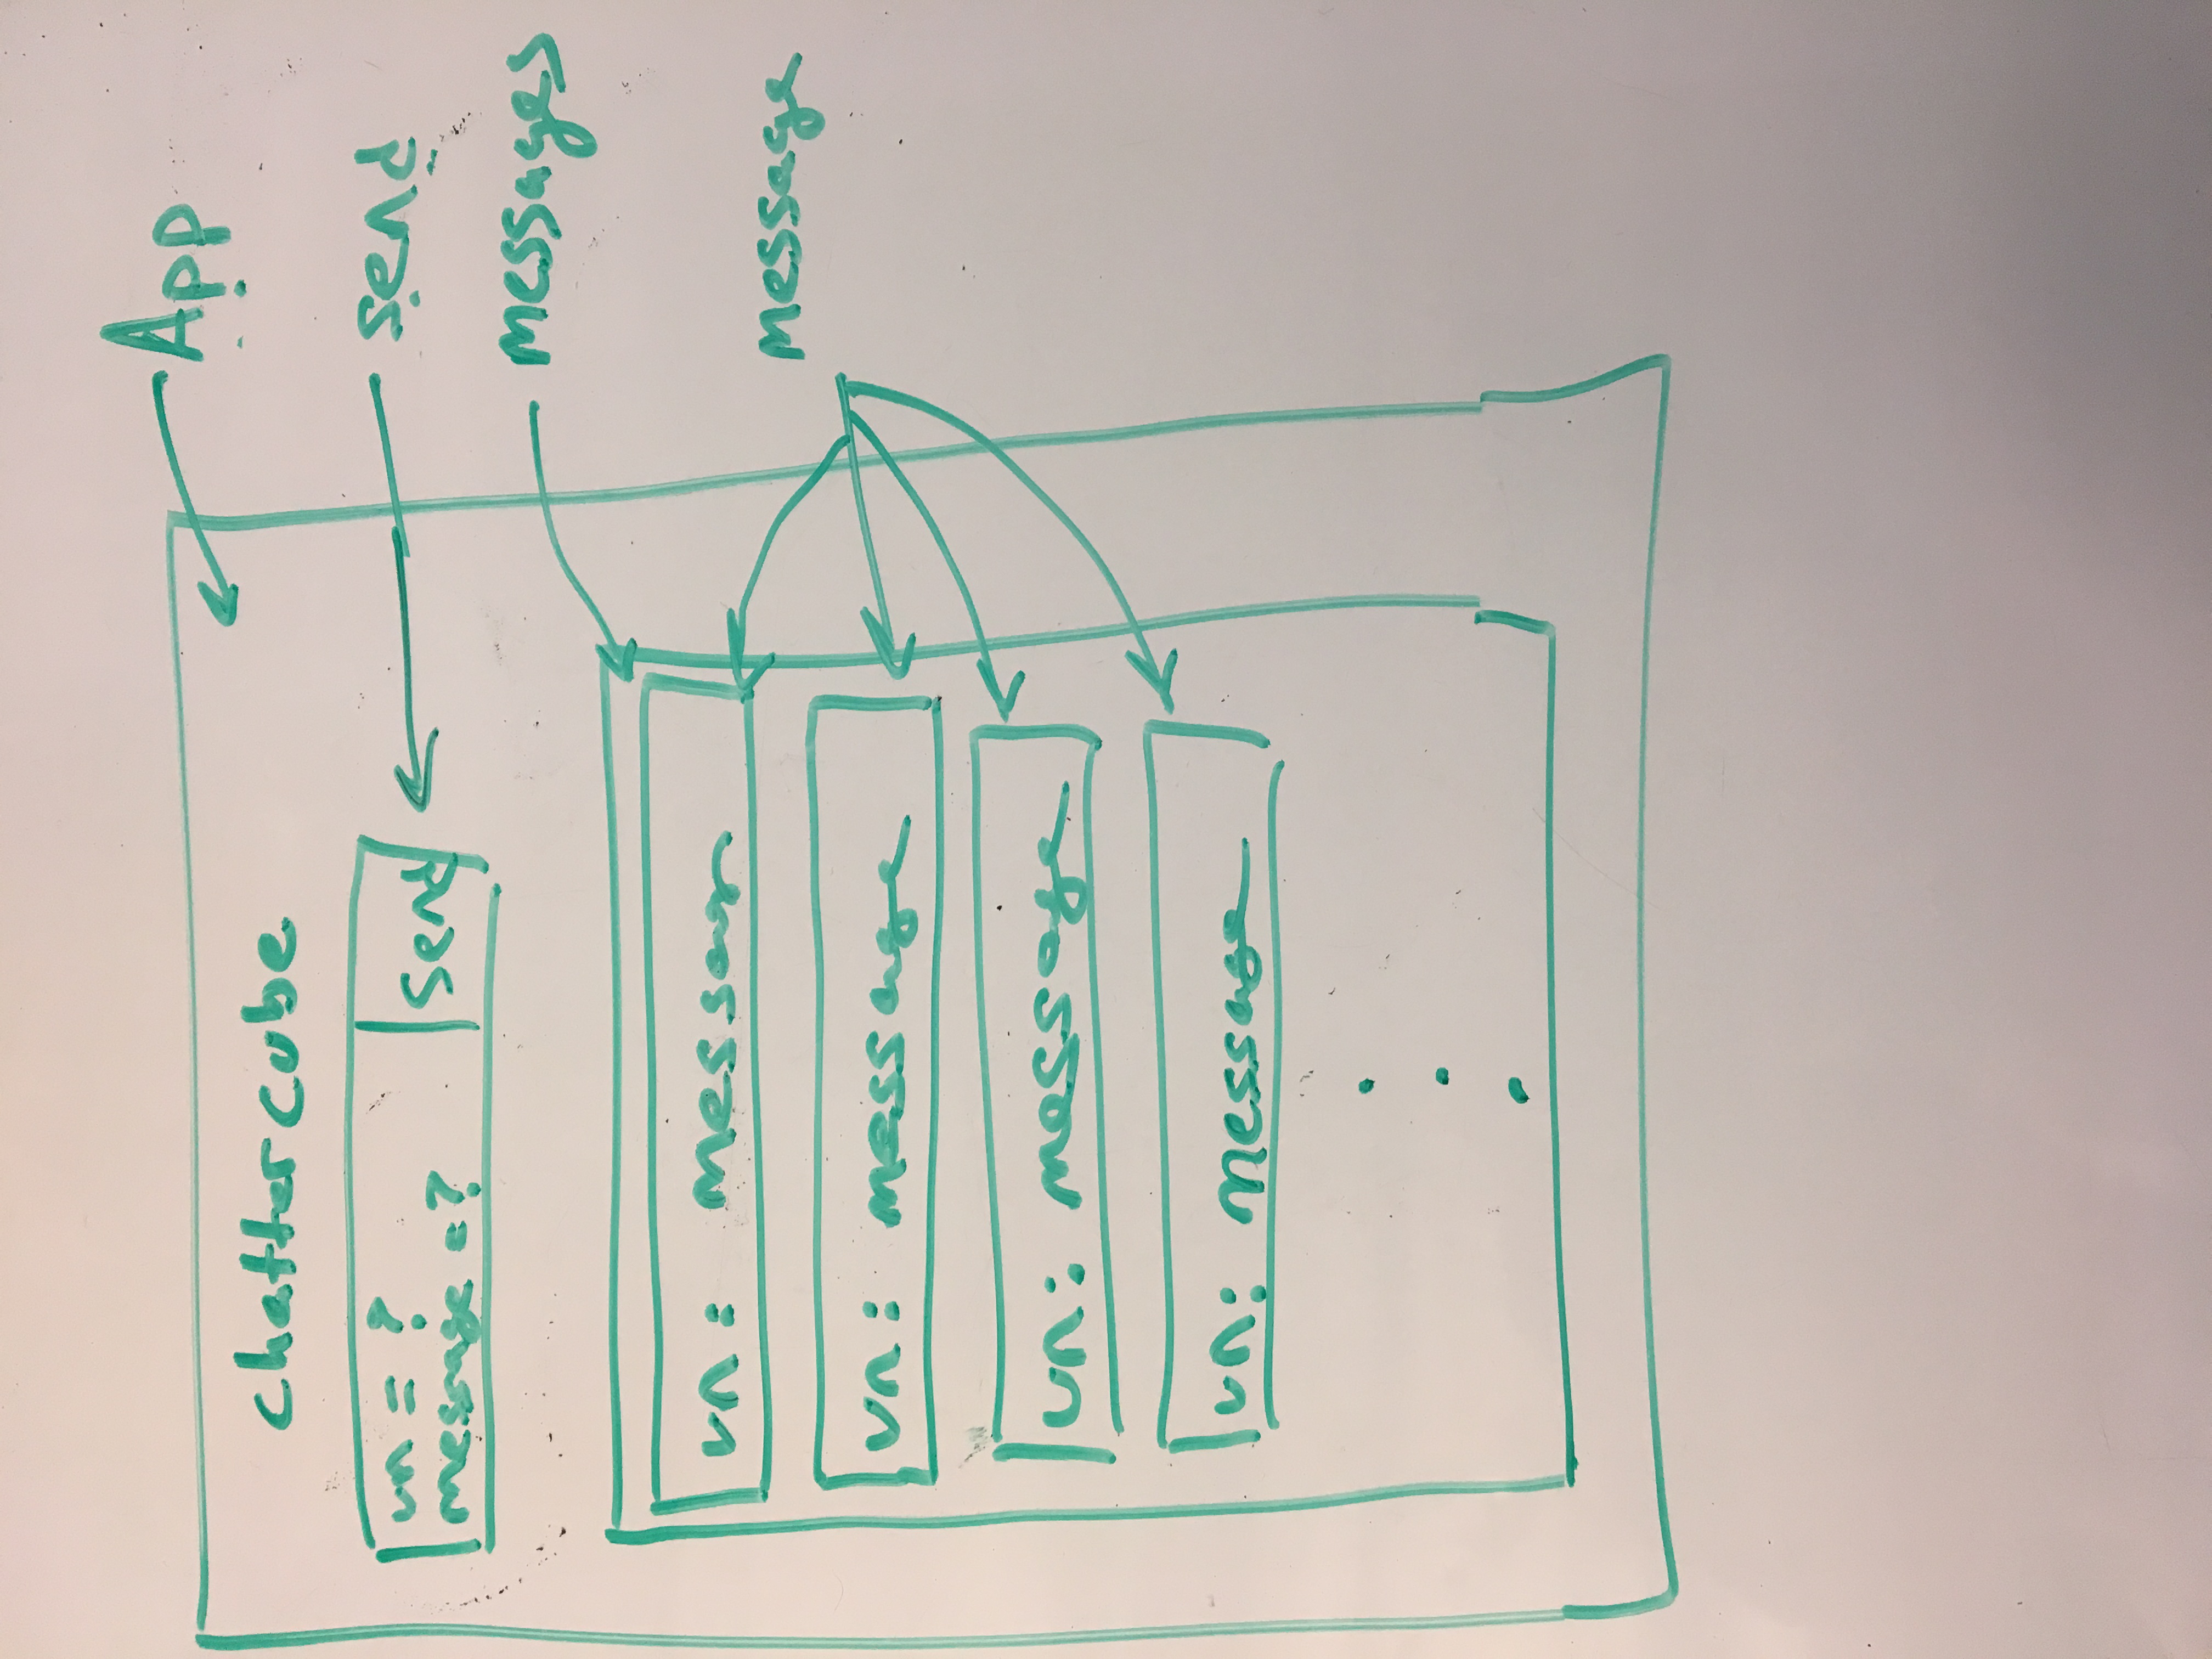 App
chatter cube
un = ?
message = ?
Send
send
messages
un:
message
un: message
un: message
un: message